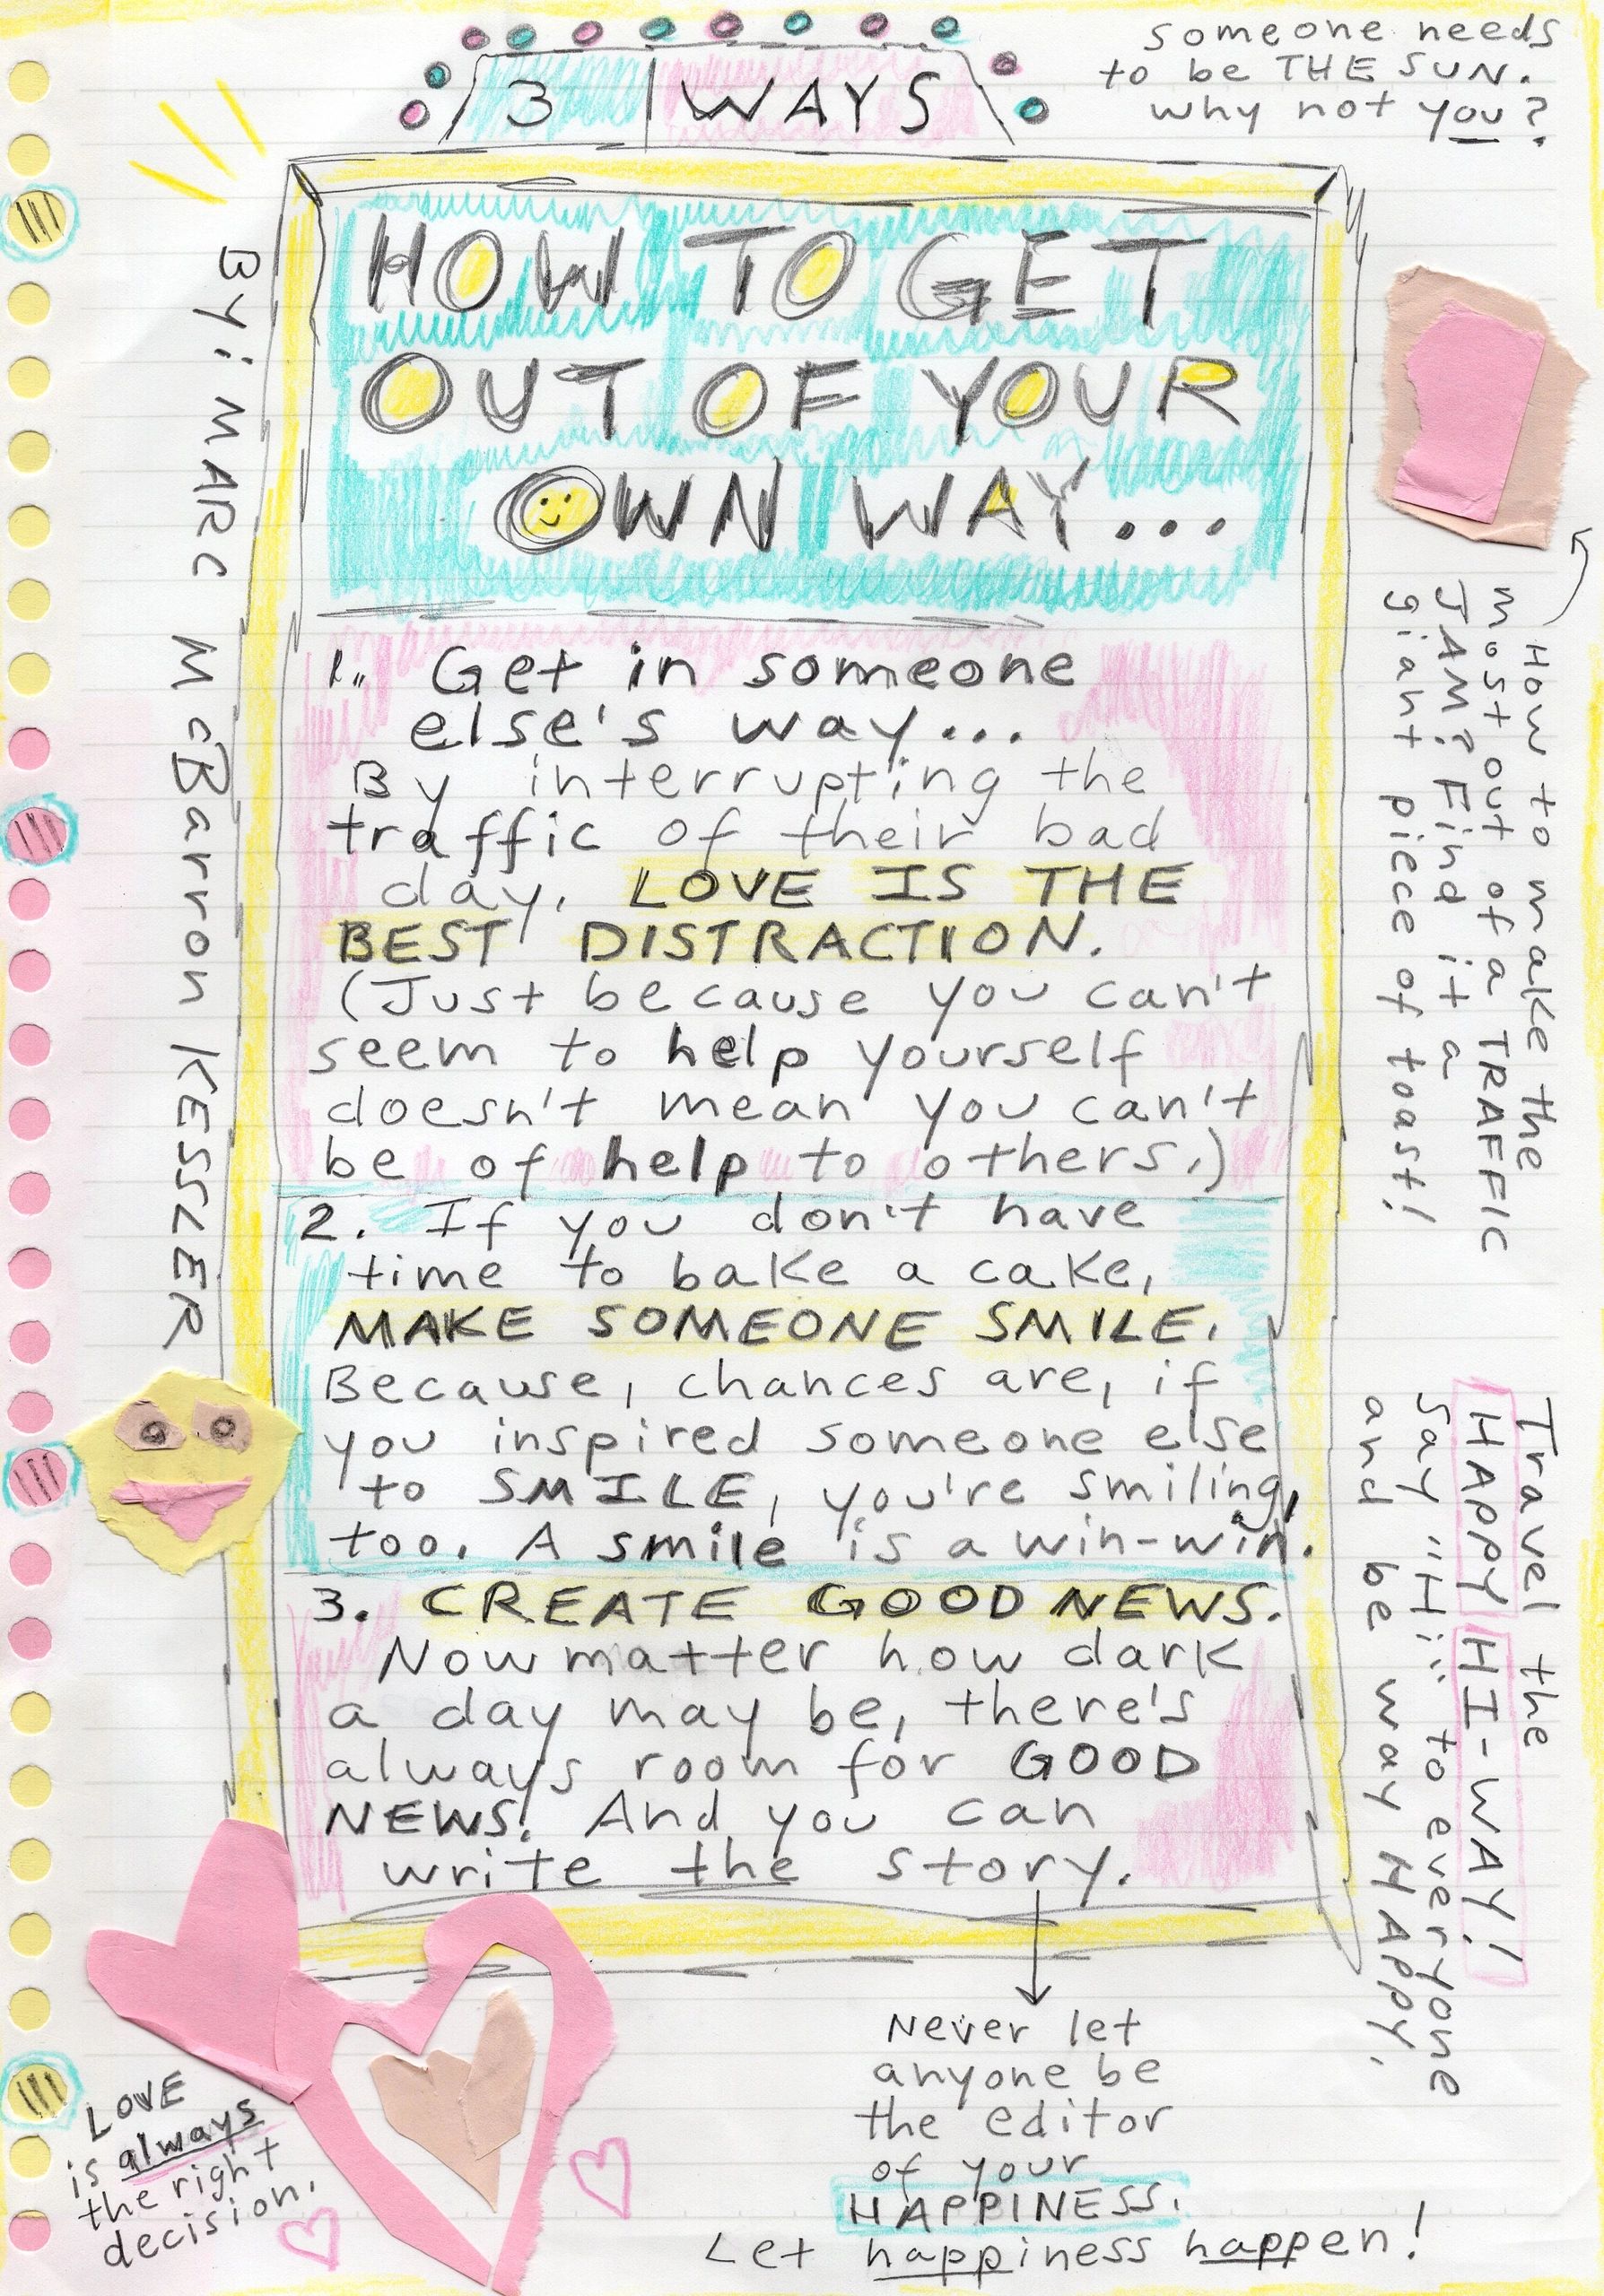 3 WAYS
someone needs
to be THE SUN.
why not you?
HOW TO GET
OUT OF YOUR
OWN WAY...
By: MARC McBarron KESSLER
1. Get in someone
else's way...
By interrupting the
traffic of their bad
day. LOVE IS THE
BEST DISTRACTION.
(Just because you can't
seem to help yourself
doesn't mean you can't
be of help to others.)
2. If you don't have
time to bake a cake,
MAKE SOMEONE SMILE.
Because, chances are, if
you inspired someone else
to SMILE, you're smiling,
too. A smile is a win-win.
3. CREATE GOOD NEWS.
Now matter how dark
a day may be, there's
always room for GOOD
NEWS! And you can
write the story.
How to make the
most out of a TRAFFIC
JAM? Find it a
giant piece of toast!
Travel the
HAPPY HI-WAY!
Say "Hi" to everyone
and be way HAPPY.
Never let
anyone be
the editor
of your
HAPPINESS.
Let happiness happen!
LOVE
is always
the right
decision.